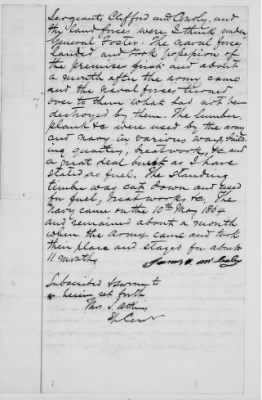 Sergeants Clifford and Conly, and
the land forces were I think under
General Foster. The naval force
landed and took possession of
the premises first and about
a month after the army came
and the naval forces turned
over to them what had not been
destroyed by them. The lumber,
plank &c were used by the army
and navy in various ways, build-
ing quarters, breastworks, &c and
a great deal burnt as I have
stated as fuel. The standing
timber was cut down and used
for fuel, breastworks, &c. The
Navy came on the 10th May 1864
and remained about a month
when the Army came and took
their place and stayed for about
11 months
James
Subscribed & sworn to
as herein set forth
Thos. J.
Sp Com